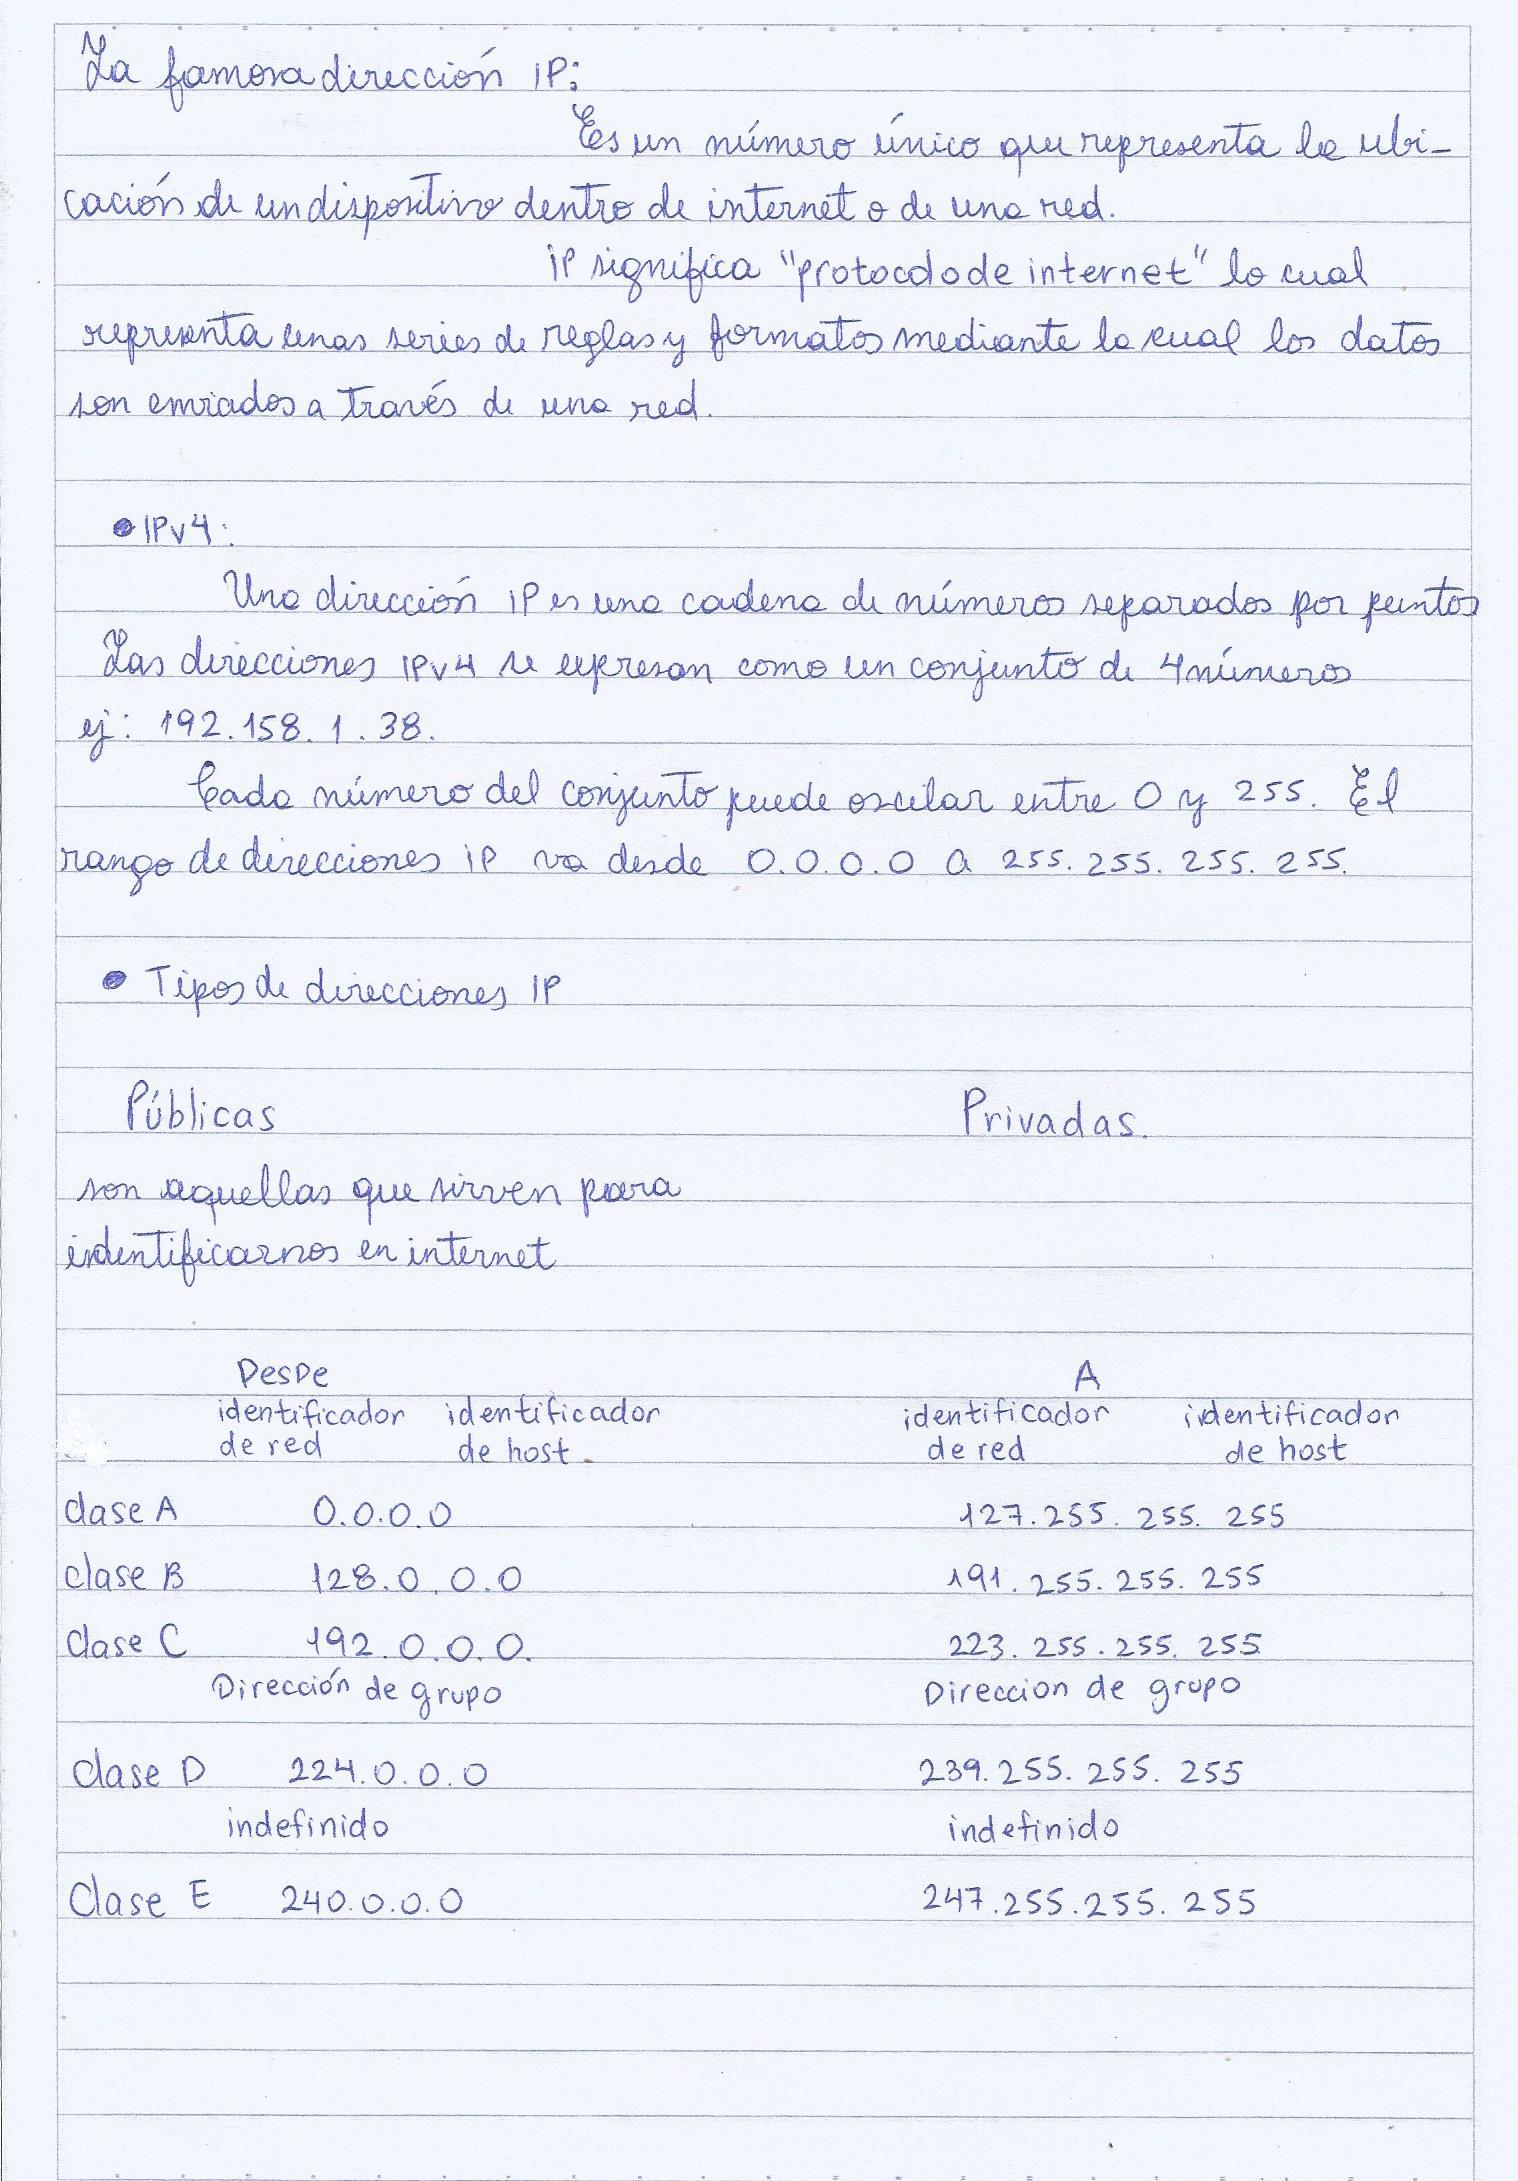 La famosa dirección IP:
Es un número único que representa la ubi-
cación de un dispositivo dentro de internet o de una red.
IP significa "protocolo de internet" lo cual
representa unas series de reglas y formatos mediante lo cual los datos
son enviados a través de una red.
• IPv4:
Una dirección IP es una cadena de números separados por puntos
Las direcciones IPv4 se expresan como un conjunto de 4 números
ej: 192.158.1.38.
Cada número del conjunto puede oscilar entre 0 y 255. El
rango de direcciones IP va desde 0.0.0.0 a 255.255.255.255.
• Tipos de direcciones IP
Públicas Privadas.
son aquellas que sirven para
identificarnos en internet
Desde A
identificador identificador identificador identificador
de red de host. de red de host
clase A 0.0.0.0 127.255.255.255
clase B 128.0.0.0 191.255.255.255
clase C 192.0.0.0. 223.255.255.255
Dirección de grupo Direccion de grupo
clase D 224.0.0.0 239.255.255.255
indefinido indefinido
Clase E 240.0.0.0 247.255.255.255